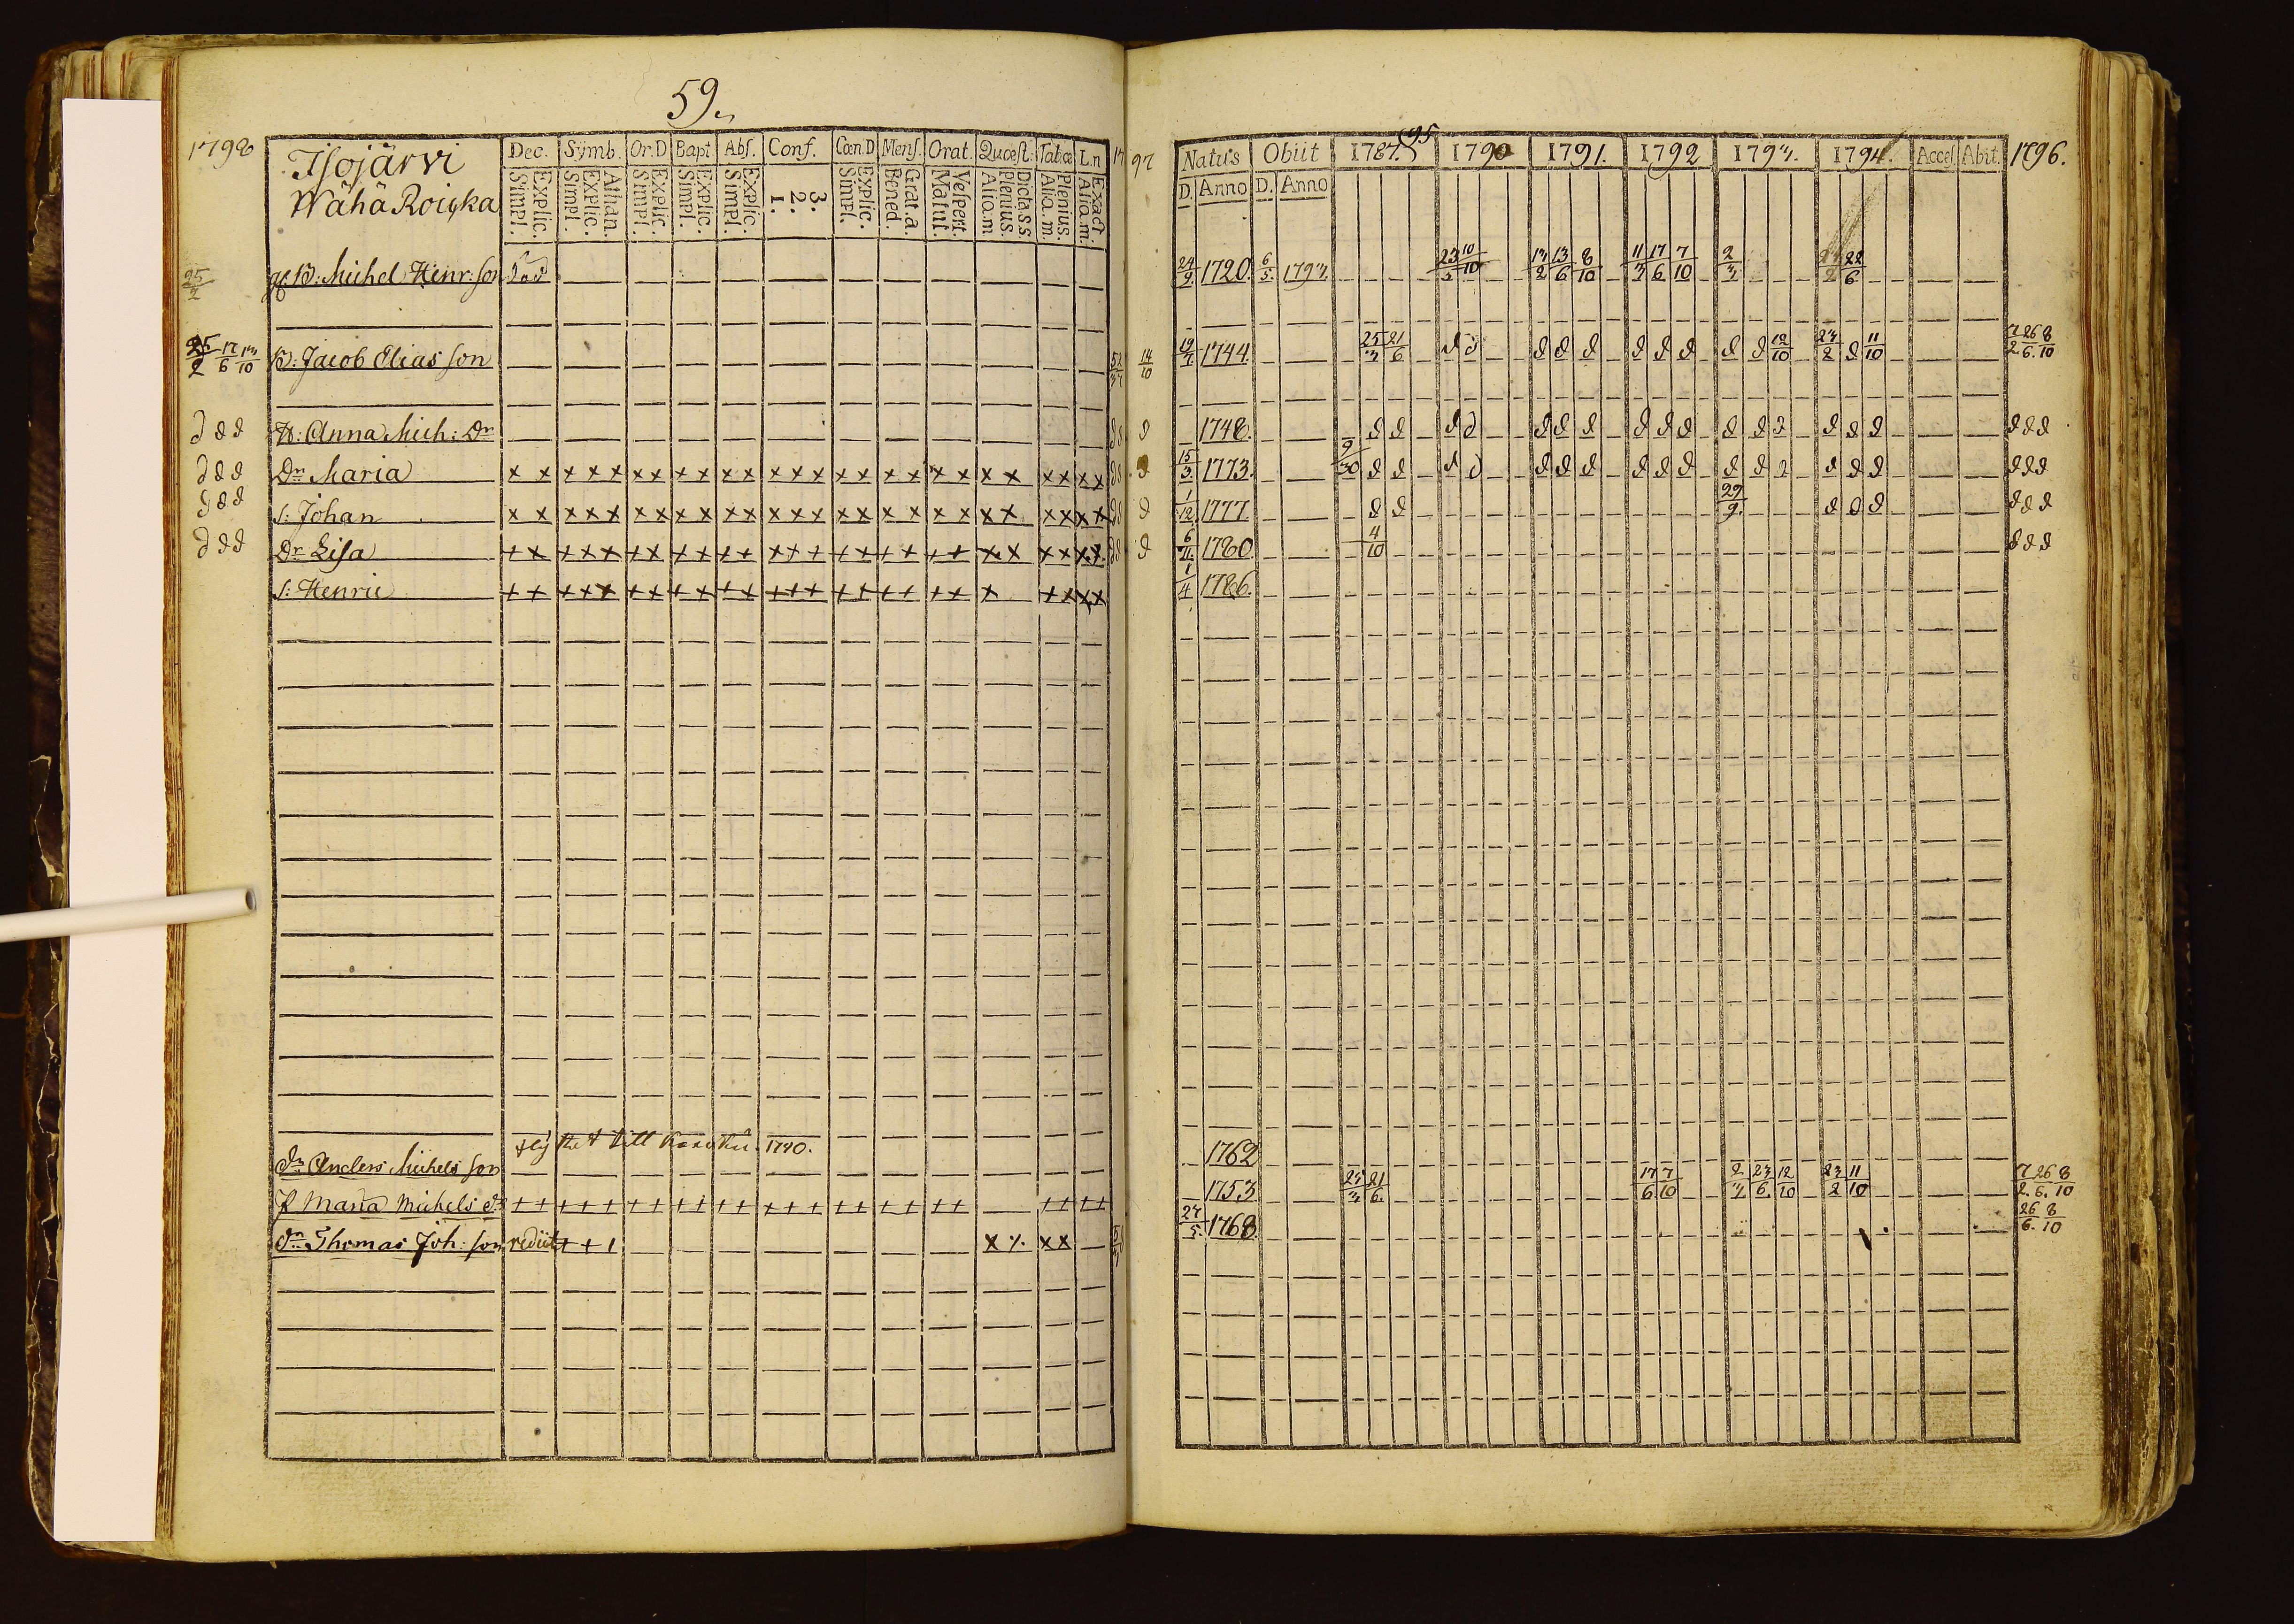 59.
1798
Isojärvi
Wähä Roicka
Dec. Symb. Or.D Bapt. Abs. Conf. Cœn.D Mens. Orat. Quœst. Tabœ L.n 17
Explic. Simpl. Athan. Explic. Simpl. Explic. Simpl. Explic. Simpl. Explic. Simpl. 3. 2. 1. Explic. Simpl. Grat.a Bened. Vespert. Matut. Dicta S.S. Plenius. Alio.m Plenius. Alia.m. Exact. Alia.m.
B: Michel Henr: son död
25/2
B: Jacob Elias son
25/2 17/6 13/10
H: Anna Mich: Dr
d d d
Dr Maria x x x x x x x x x x x x x x x x x x x x x x x x x x x
d d d
s: Johan x x x x x x x x x x x x x x x x x x x x x x x x x x x
d d d
Dr Lisa + x + + + + x + + + + + + + + + + + + + x x x x x x
d d d
s: Henric + + + + x + + + + + + + + + + + + + + + + x + x x x
till 1790.
dr Anders Michels son
P Maria Michels dr + + + + + + + + + + + + + + + + + + + + + + + + +
dr Thomas Joh: son rediit + + 1 x ⁒ x x
97
Natus Obiit 1787. 95 1790 1791. 1792 1793. 1794. Acces Abit. 1796.
D. Anno D. Anno
24/9 1720. 6/5 1793. 23/5 10/10 13/2 13/6 8/10 11/3 17/6 7/10 2/3 22/6
14/10
1744. 25/3 21/6 d d d d d d d d d d 12/10 23/2 d 11/10 7/2 26/6 8/10
d 1748. d d d d d d d d d d d d d d d d d d d
d 15/3 1773. 9/30 d d d d d d d d d d d d d d d d d d d
d 1/12 1777 d d 29/9. d d d d d d
d 6/11 1780 4/10 d d d
1/4 1786.
1762
1753 25/3 21/6. 17/6 7/10 2/3 23/6 12/10 23/2 11/10 7/2. 26/6. 8/10
27/5. 1768. 26/6. 8/10